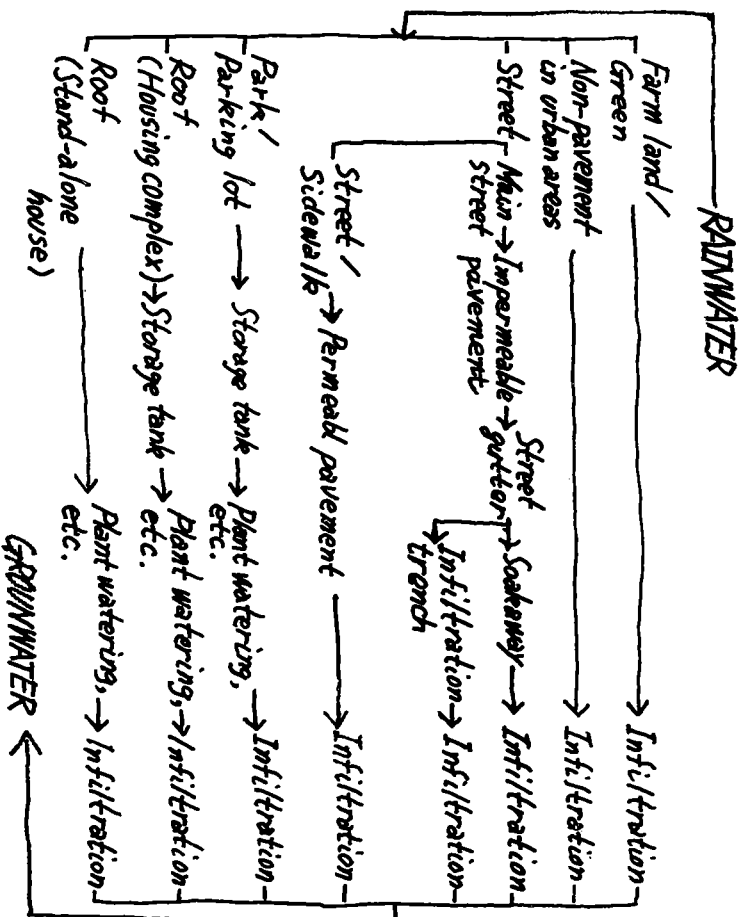 RAINWATER
Farm land/
Green
Infiltration
Non-pavement
in urban areas
Infiltration
Street
Main
street
Impermeable
pavement
Street
gutter
Soakaway
Infiltration
Infiltration
trench
Infiltration
Street/
Sidewalk
Permeabl pavement
Infiltration
Park/
Parking lot
Storage tank
Plant watering,
etc.
Infiltration
Roof
(Housing complex)
Storage tank
Plant watering,
etc.
Infiltration
Roof
(Stand-alone
house)
Plant watering,
etc.
Infiltration
GROUNWATER